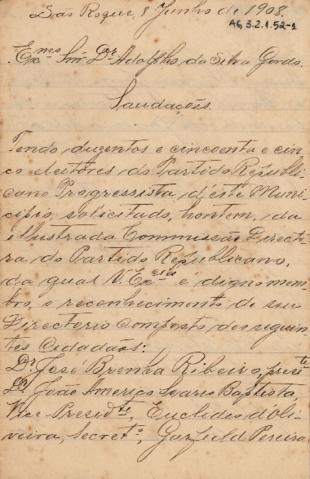 São Roque, 8 Junho de 1908.
AG 3.2.1.52-1
Exmo. Snr. Dr. Adolpho da Silva Gordo.
Saudações.
Tendo duzentos e cincoenta e cin
co eleitores do Partido Republi
cano Progressista, d'este Muni
cipio, solicitado, hontem, da
illustrada Commissão Directo
ra, do Partido Republicano,
da qual V. Excia. é digno mem
bro, o reconhecimento de seu
Directorio composto dos seguin
tes Cidadãos:
Dr. José Brenha Ribeiro, preste.
Dr. João Americo Soares Baptista,
Vice Presidte., Euclides d'Oli
veira, Secreto., Garfield Pereira